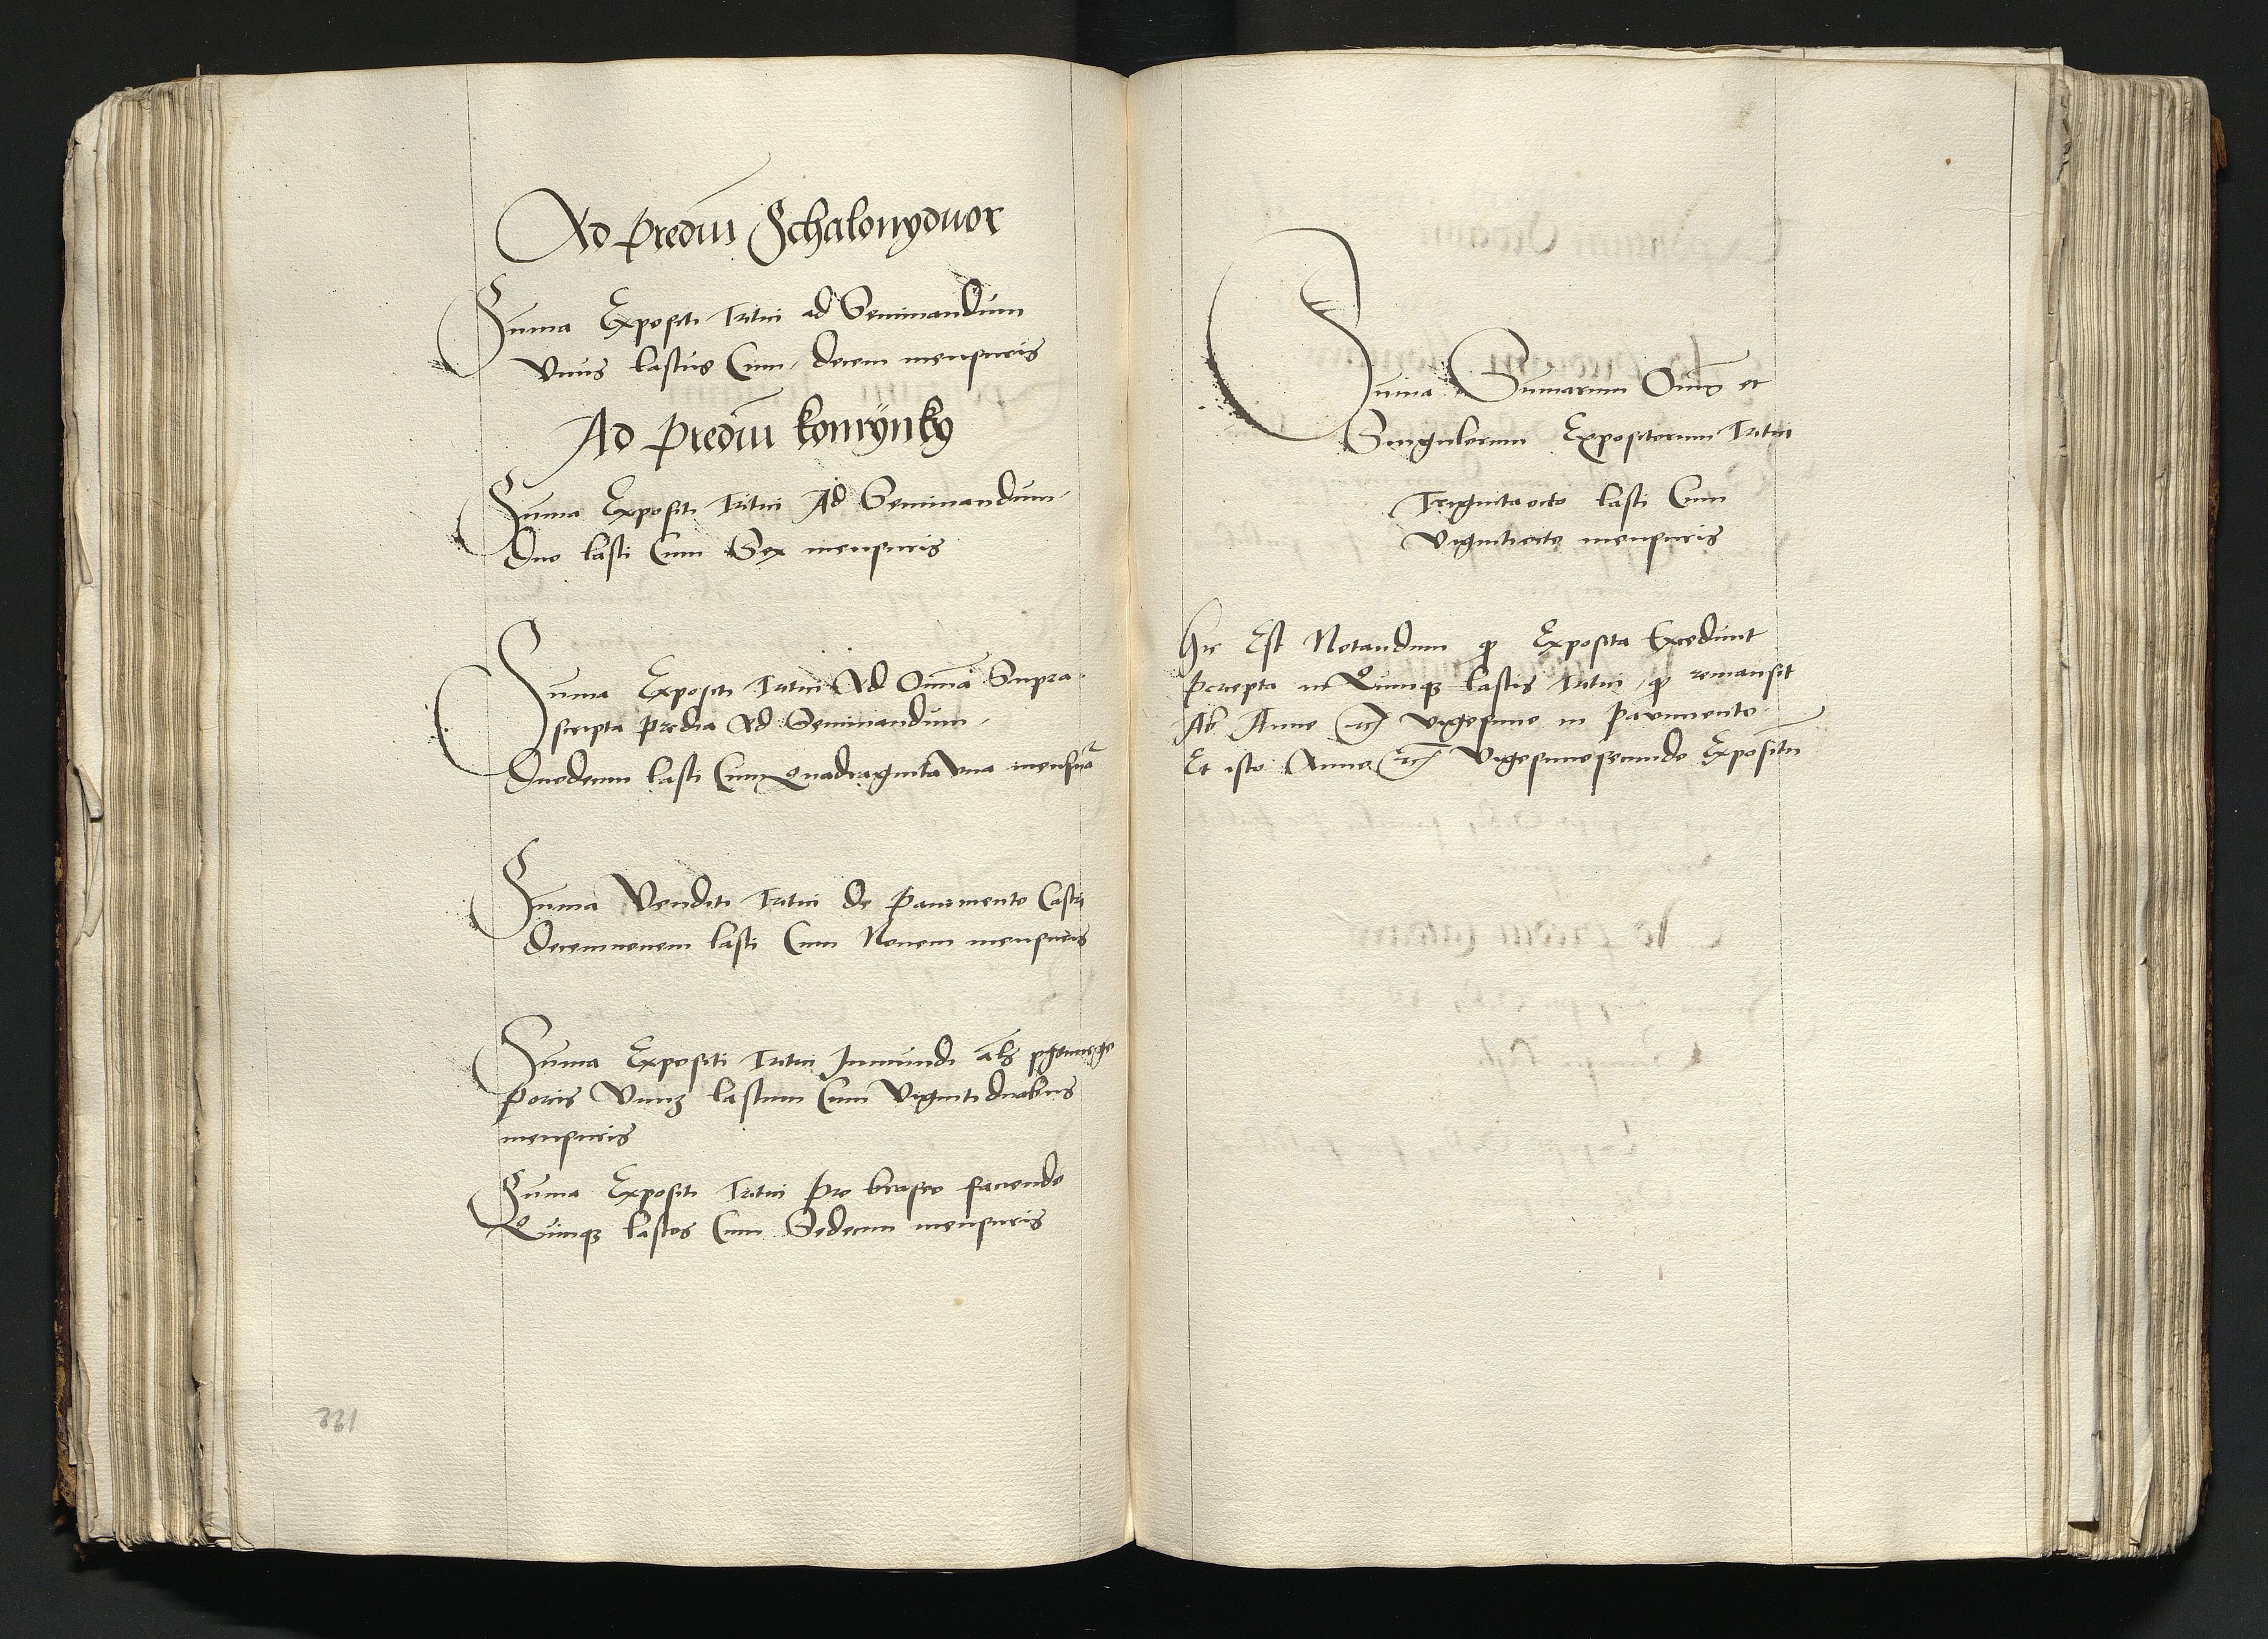 Ad prediu Schalonydvor
Suma Expositi Tritici ad Seminandum
Vnus lastus Cum decem mensuris
Ad prediu konrÿnky
Suma Expositi Tritici Ad Seminandum
Duo lasti Cum Sex mensuris
Suma Expositi Tritici Ad Omnia Supra
scripta predia Ad Seminandum
Duodecim lasti Cum Quadraginta vna mensura
Suma Venditi Tritici de Pauimento Castri
decemnouem lasti Cum Nouem mensuris
Suma Expositi Tritici Inmundi als
porcis Vnu lastum Cum Viginti duobus
mensuris
Suma Expositi Tritici pro braseo faciendo
Quinque lastos Cum Sedecim mensuris
221
Suma Sumarum Omniu et
Singulorum Expositorum Tritici
Trigintaocto lasti Cum
Vigintiocto mensuris
Hic Est Notandum quod Exposita Excedunt
Percepta in Quinque lastis Tritici quod remansit
Ab Anno etc Vigesimo in pauimento
Et isto Anno etc Vigesimosecundo Expositu